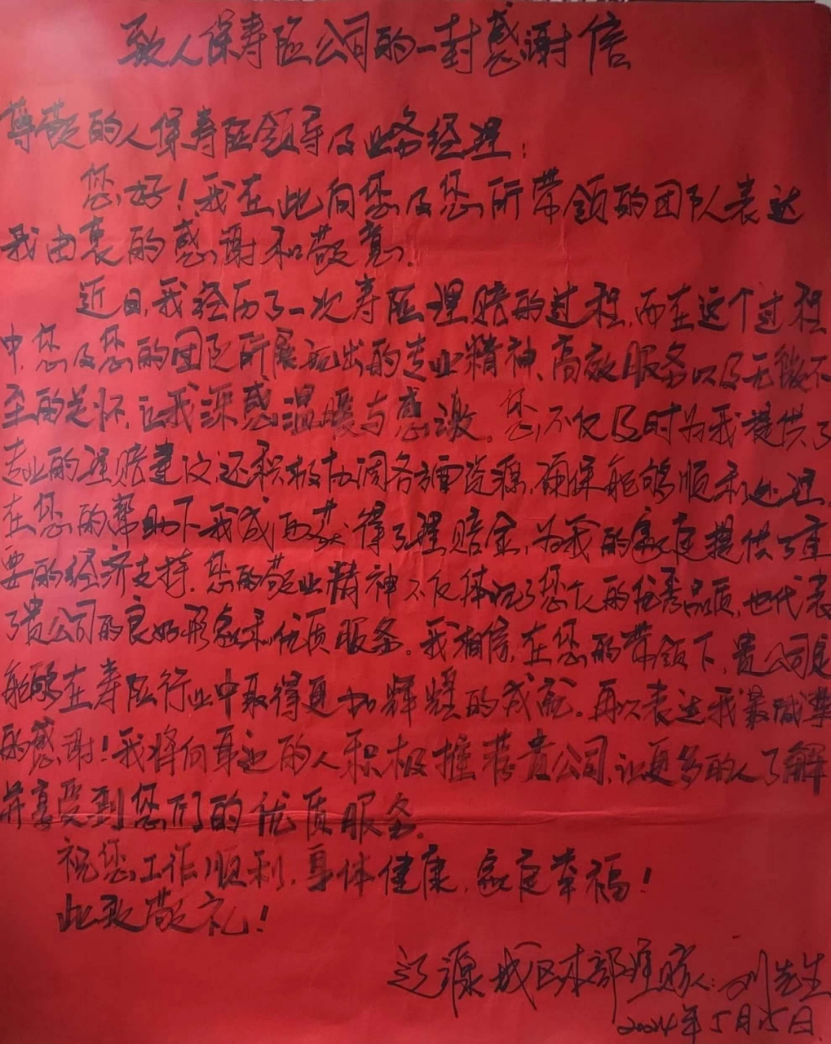 致人保寿险公司的一封感谢信
尊敬的人保寿险领导及业务经理：
您好！我在此向您及您所带领的团队表达
我由衷的感谢和敬意。
近日，我经历了一次寿险理赔的过程，而在这个过程
中，您及您的团队所展现出的专业精神、高效服务以及无微不
至的关怀，让我深感温暖与感激。您不仅及时为我提供了
专业的理赔建议，还积极协调各方面资源，确保能够顺利处理。
在您的帮助下，我成功获得了理赔金，为我的家庭提供了重
要的经济支持。您的敬业精神不仅体现了您个人的优秀品质，也代表
了贵公司的良好形象和优质服务。我相信，在您的带领下，贵公司定
能够在寿险行业中取得更加辉煌的成就。再次表达我最诚挚
的感谢！我将向身边的人积极推荐贵公司，让更多的人了解
并享受到您们的优质服务。
祝您工作顺利，身体健康，家庭幸福！
此致敬礼！
辽源城区本部理赔人：刘先生
2024年5月15日